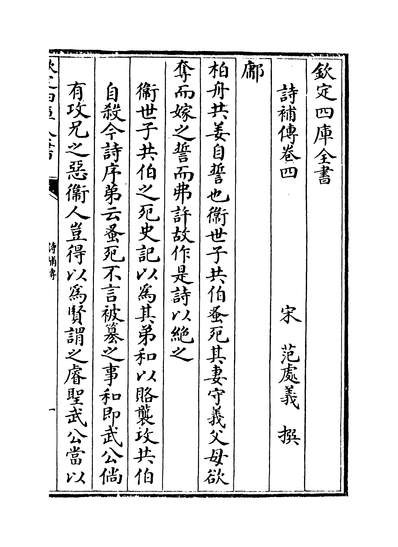 欽定四庫全書
詩補傳卷四
宋 范處義 撰
鄘
柏舟共姜自誓也衞世子共伯蚤死其妻守義父母欲
奪而嫁之誓而弗許故作是詩以絶之
衞世子共伯之死史記以為其弟和以賂襲攻共伯
自殺今詩序第云蚤死不言被篡之事和即武公倘
有攻兄之惡衞人豈得以為賢謂之睿聖武公當以
欽定四庫全書
詩補傳
一